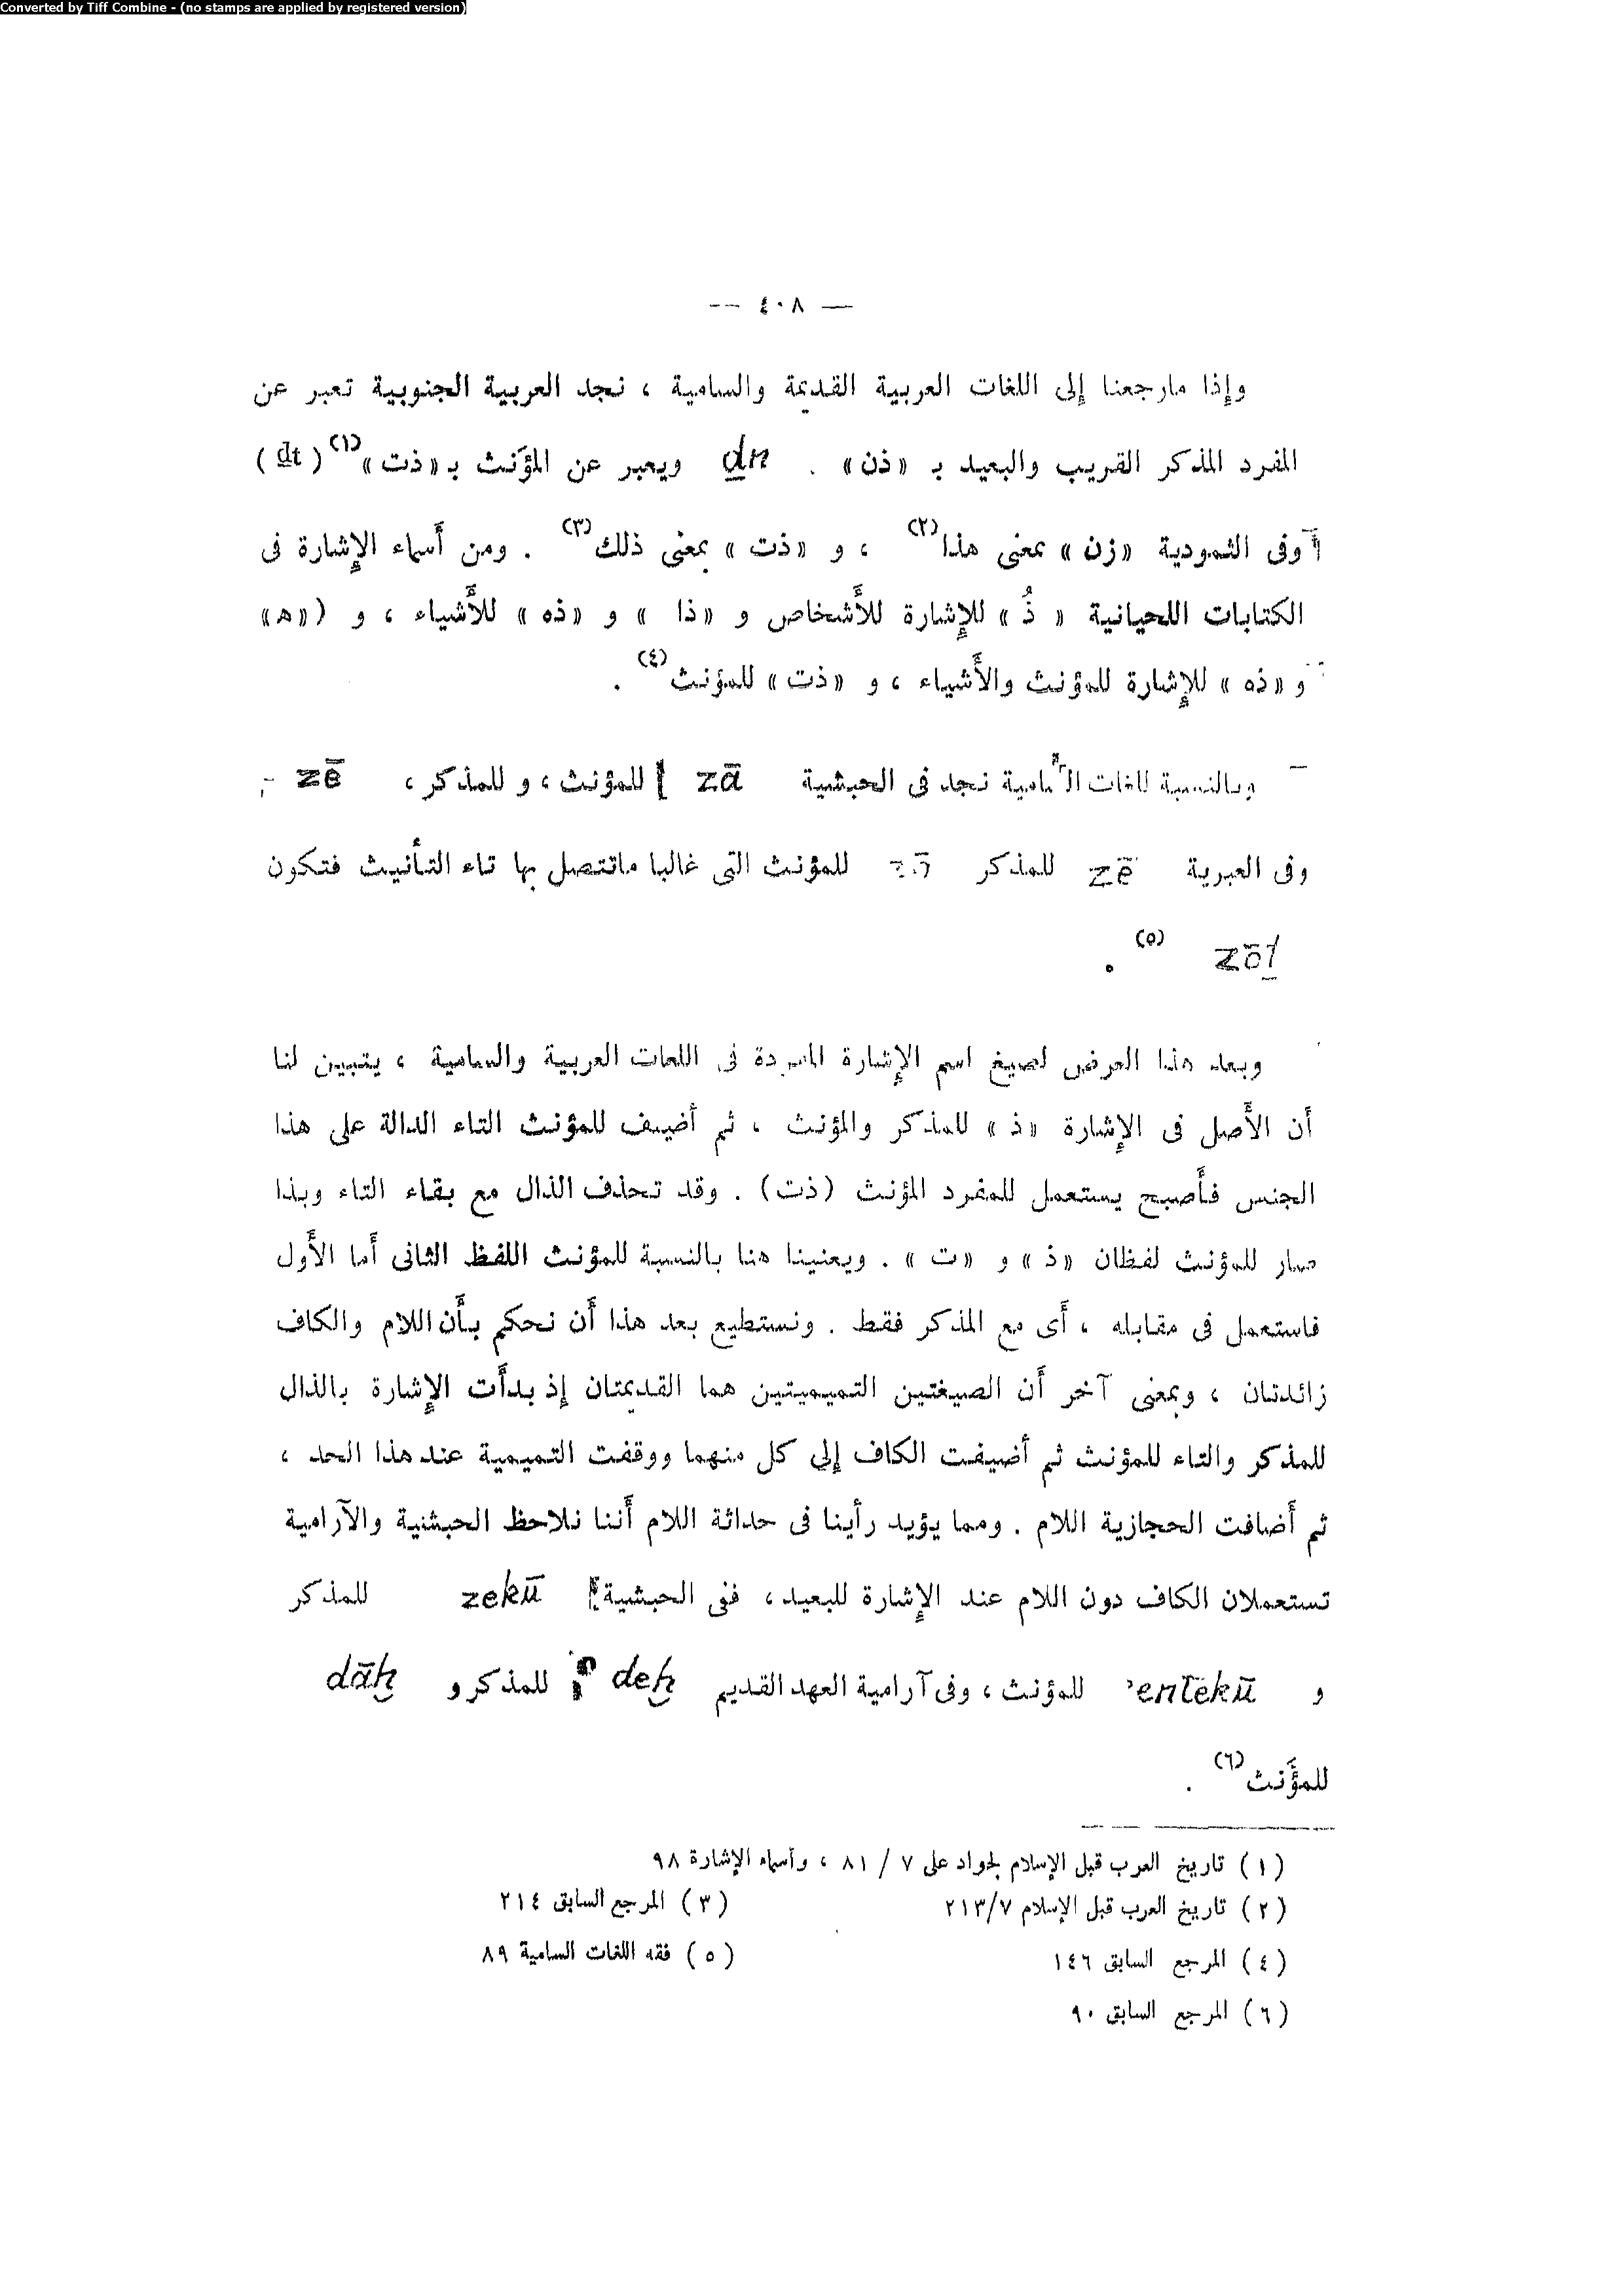 Converted by Tiff Combine - (no stamps are applied by registered version)
— ٤٠٨ —
وإذا مارجعنا إلى اللغات العربية القديمة والسامية ، نجد العربية الجنوبية تعبر عن
المفرد المذكر القريب والبعيد بـ «ذن» . ḏn ويعبر عن المؤنث بـ «ذت» (١) (ḏt)
وفى الثمودية «زن» بمعنى هذا (٢) ، و «ذت» بمعنى ذلك (٣) . ومن أسماء الإشارة فى
الكتابات اللحيانية « ذُ » للإشارة للأشخاص و «ذا » و «ذه » للأشياء ، و («ه»
و «ذه » للإشارة للمؤنث والأشياء ، و «ذت » للمؤنث (٤) .
وبالنسبة للغات السامية نجد فى الحبشية zā للمؤنث ، و للمذكر ، zē
وفى العبرية zē للمذكر للمؤنث التى غالبا ماتتصل بها تاء التأنيث فتكون
zōṯ (٥) .
وبعد هذا العرض لصيغ اسم الإشارة المفردة فى اللغات العربية والسامية ، يتبين لنا
أن الأصل فى الإشارة «ذ » للمذكر والمؤنث ، ثم أضيف للمؤنث التاء الدالة على هذا
الجنس فأصبح يستعمل للمفرد المؤنث (ذت) . وقد تحذف الذال مع بقاء التاء وبذا
صار للمؤنث لفظان «ذ » و «ت » . ويعنينا هنا بالنسبة للمؤنث اللفظ الثانى أما الأول
فاستعمل فى مقابله ، أى مع المذكر فقط . ونستطيع بعد هذا أن نحكم بأن اللام والكاف
زائدتان ، وبمعنى آخر أن الصيغتين التميميتين هما القديمتان إذ بدأت الإشارة بالذال
للمذكر والتاء للمؤنث ثم أضيفت الكاف إلى كل منهما ووقفت التميمية عند هذا الحد ،
ثم أضافت الحجازية اللام . ومما يؤيد رأينا فى حداثة اللام أننا نلاحظ الحبشية والآرامية
تستعملان الكاف دون اللام عند الإشارة للبعيد ، ففى الحبشية zekū للمذكر
و ʾentekū للمؤنث ، وفى آرامية العهد القديم deḵ للمذكر و dāḵ
للمؤنث (٦) .
(١) تاريخ العرب قبل الإسلام لجواد على ٧ / ٨١ ، وأسماء الإشارة ٩٨
(٢) تاريخ العرب قبل الإسلام ٢١٣/٧ (٣) المرجع السابق ٢١٤
(٤) المرجع السابق ١٤٦ (٥) فقه اللغات السامية ٨٩
(٦) المرجع السابق ٩٠